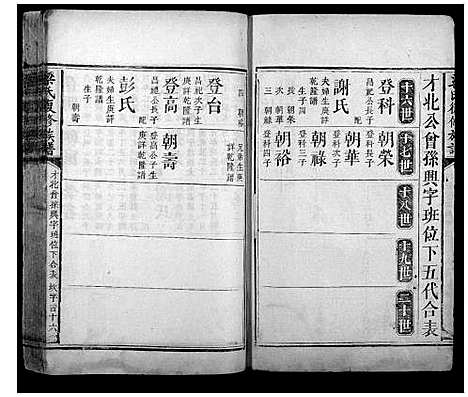 才北公曾孫興字班位下五代合表
十六世
十七世
十八世
十九世
二十世
登科
昌記公長子
配
謝氏
生子三
長朝榮
次朝華
三朝祿
朝榮
登科長子
朝華
登科次子
朝祿
登科三子
朝裕
登科四子
四朝裕
兄弟生庚
詳乾隆譜
登台
昌祀次子生
夫婦生庚詳
乾隆譜
登高
昌祀公長子
配
彭氏
夫婦生庚詳
乾隆譜
生子
朝壽
朝壽
登高公子生
庚詳乾隆譜
氏夏修族譜
才北曾孫興字班位下合表